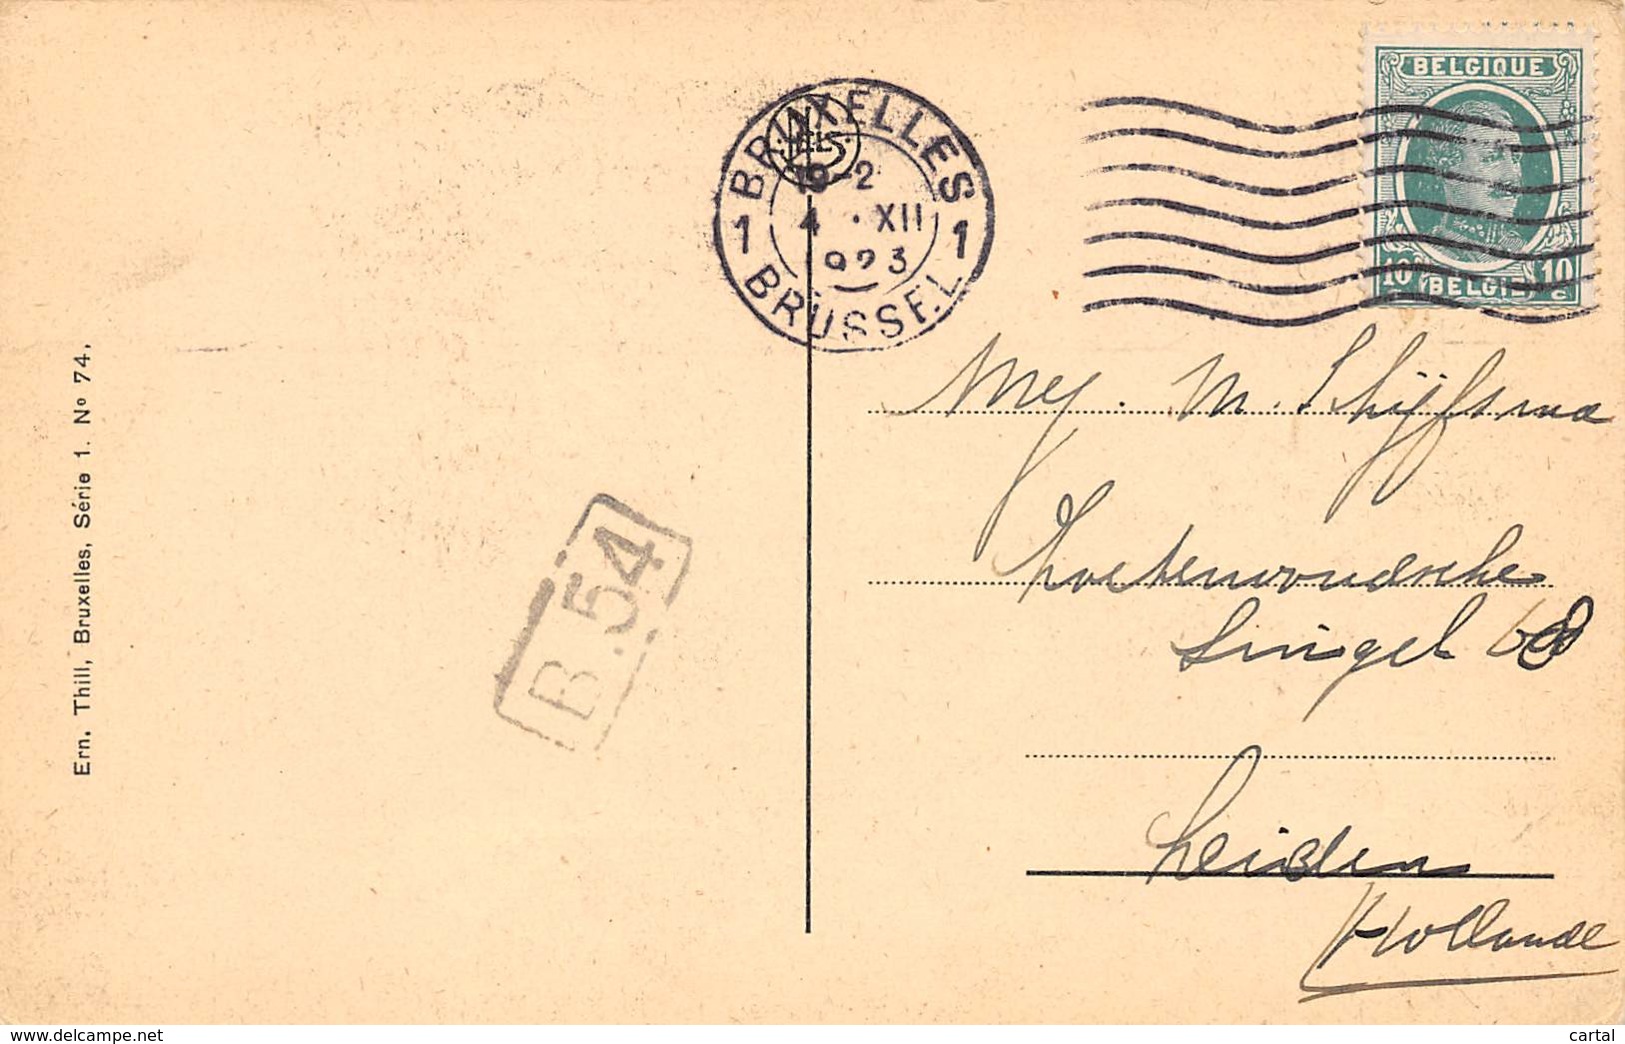 BRUXELLES
NELS
19-2
1 4 . XII 1
1923
BRUSSEL
BELGIQUE
10 c BELGIË 10 c
Mej. M. Schijfsma
Zoeterwoudsche
Singel 68
Leiden
Hollande
B.54
Ern. Thill, Bruxelles, Série 1. No 74.
www.delcampe.net
cartal